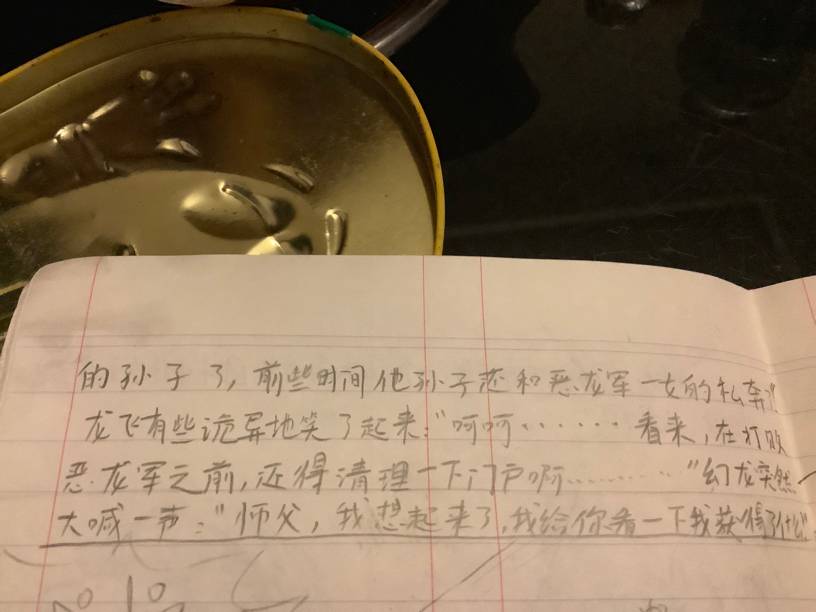 的孙子了，前些时间他孙子还和恶龙军一女的私奔”
龙飞有些诡异地笑了起来：“呵呵……看来，在打败
恶龙军之前，还得清理一下门户啊…………”幻龙突然
大喊一声：“师父，我想起来了，我给你看一下我获得了什么”